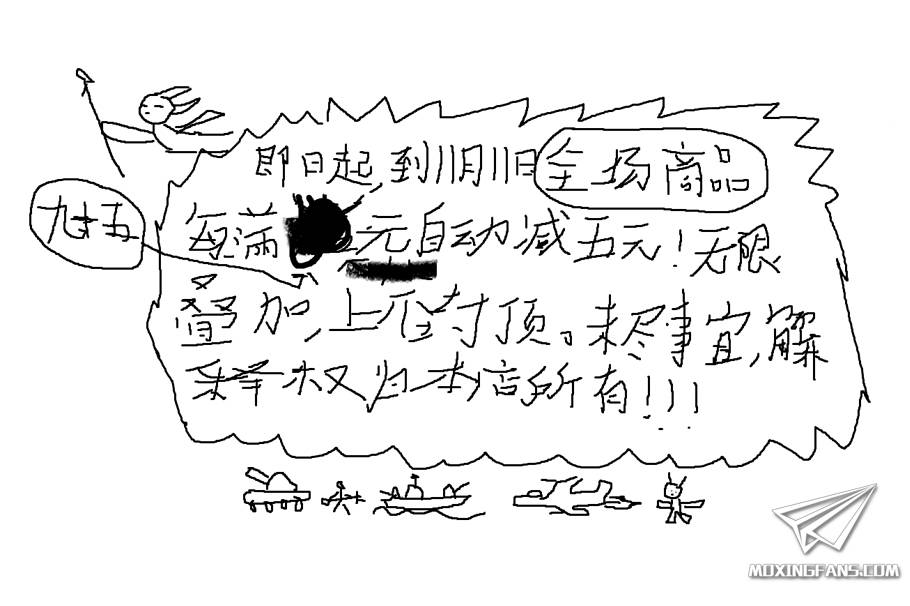 即日起,到11月11日全场商品
九十五
每满元自动减五元!无限
叠加,上不封顶。未尽事宜,解
释权归本店所有!!!
MOXINGFANS.COM